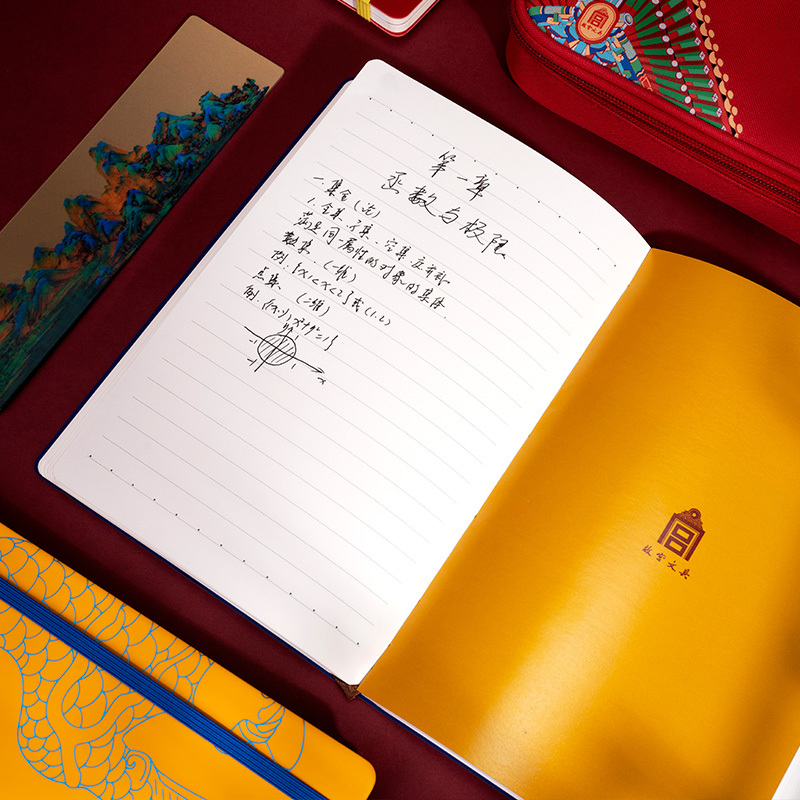 第一章
函数与极限
一.集合(论)
1.全集.子集.空集.交并补
满足同一属性的对象的集体.
数集.(一维)
例.{x|1<x<2}或(1.2)
点集.(二维)
例.{(x.y)|x²+y²=1}
y
-1
1
-1
x
故宫文具